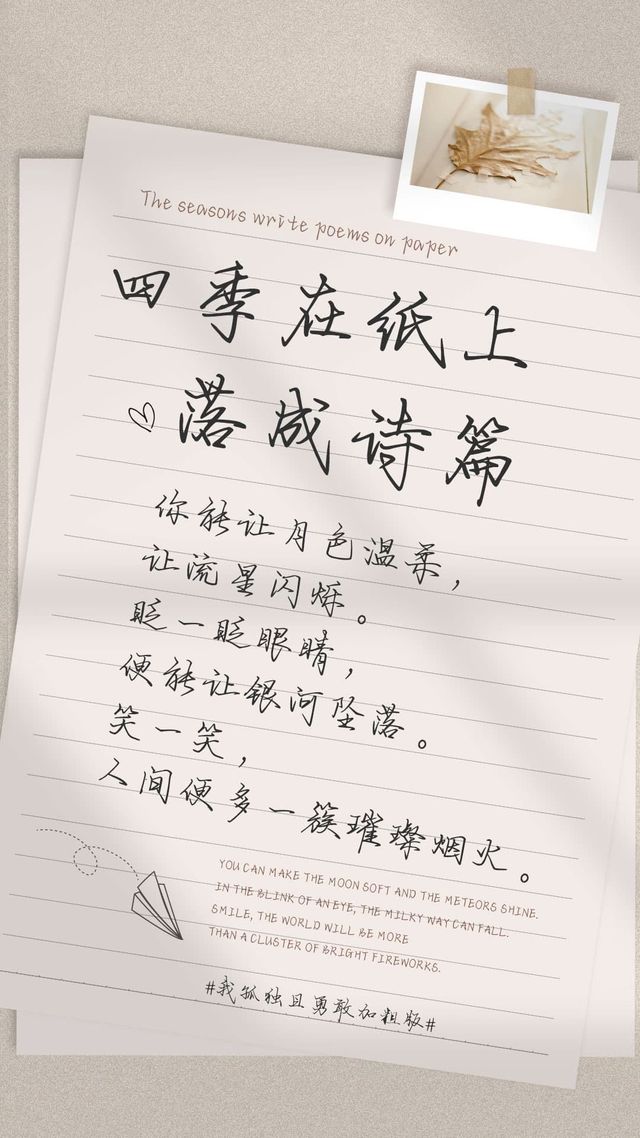 The seasons write poems on paper
四季在纸上
落成诗篇
你能让月色温柔，
让流星闪烁。
眨一眨眼睛，
便能让银河坠落。
笑一笑，
人间便多一簇璀璨烟火。
YOU CAN MAKE THE MOON SOFT AND THE METEORS SHINE.
IN THE BLINK OF AN EYE, THE MILKY WAY CAN FALL.
SMILE, THE WORLD WILL BE MORE
THAN A CLUSTER OF BRIGHT FIREWORKS.
#我孤独且勇敢加粗版#